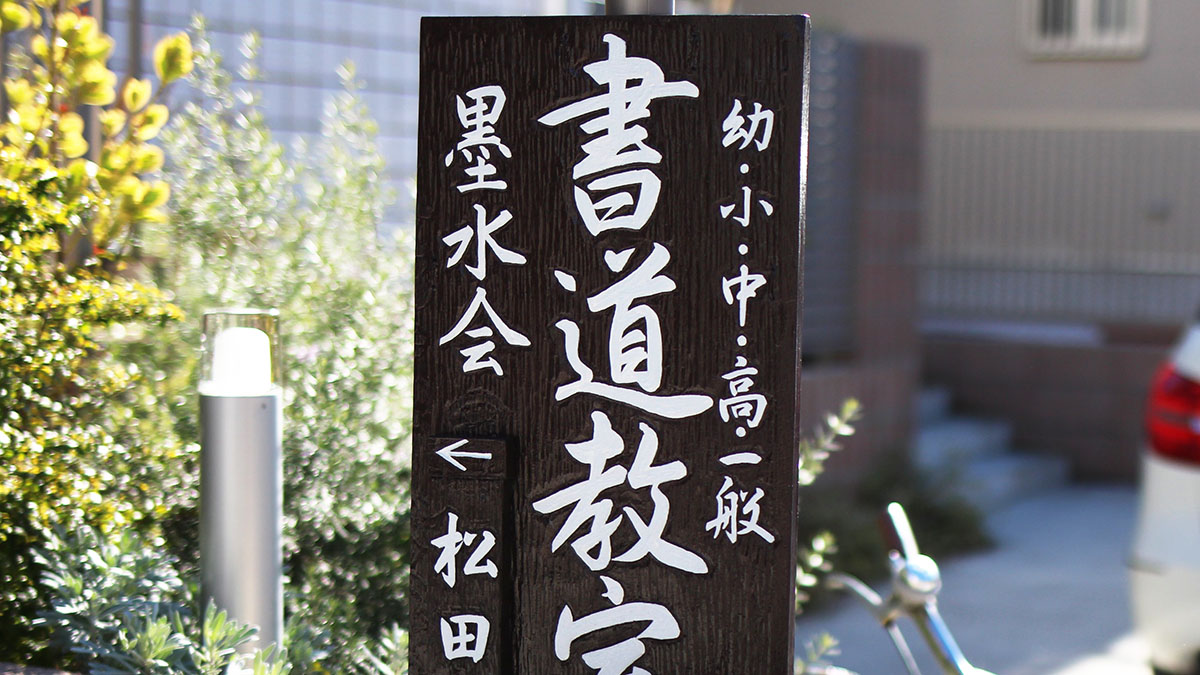 幼・小・中・高・一般
書道教室
墨水会
←松田